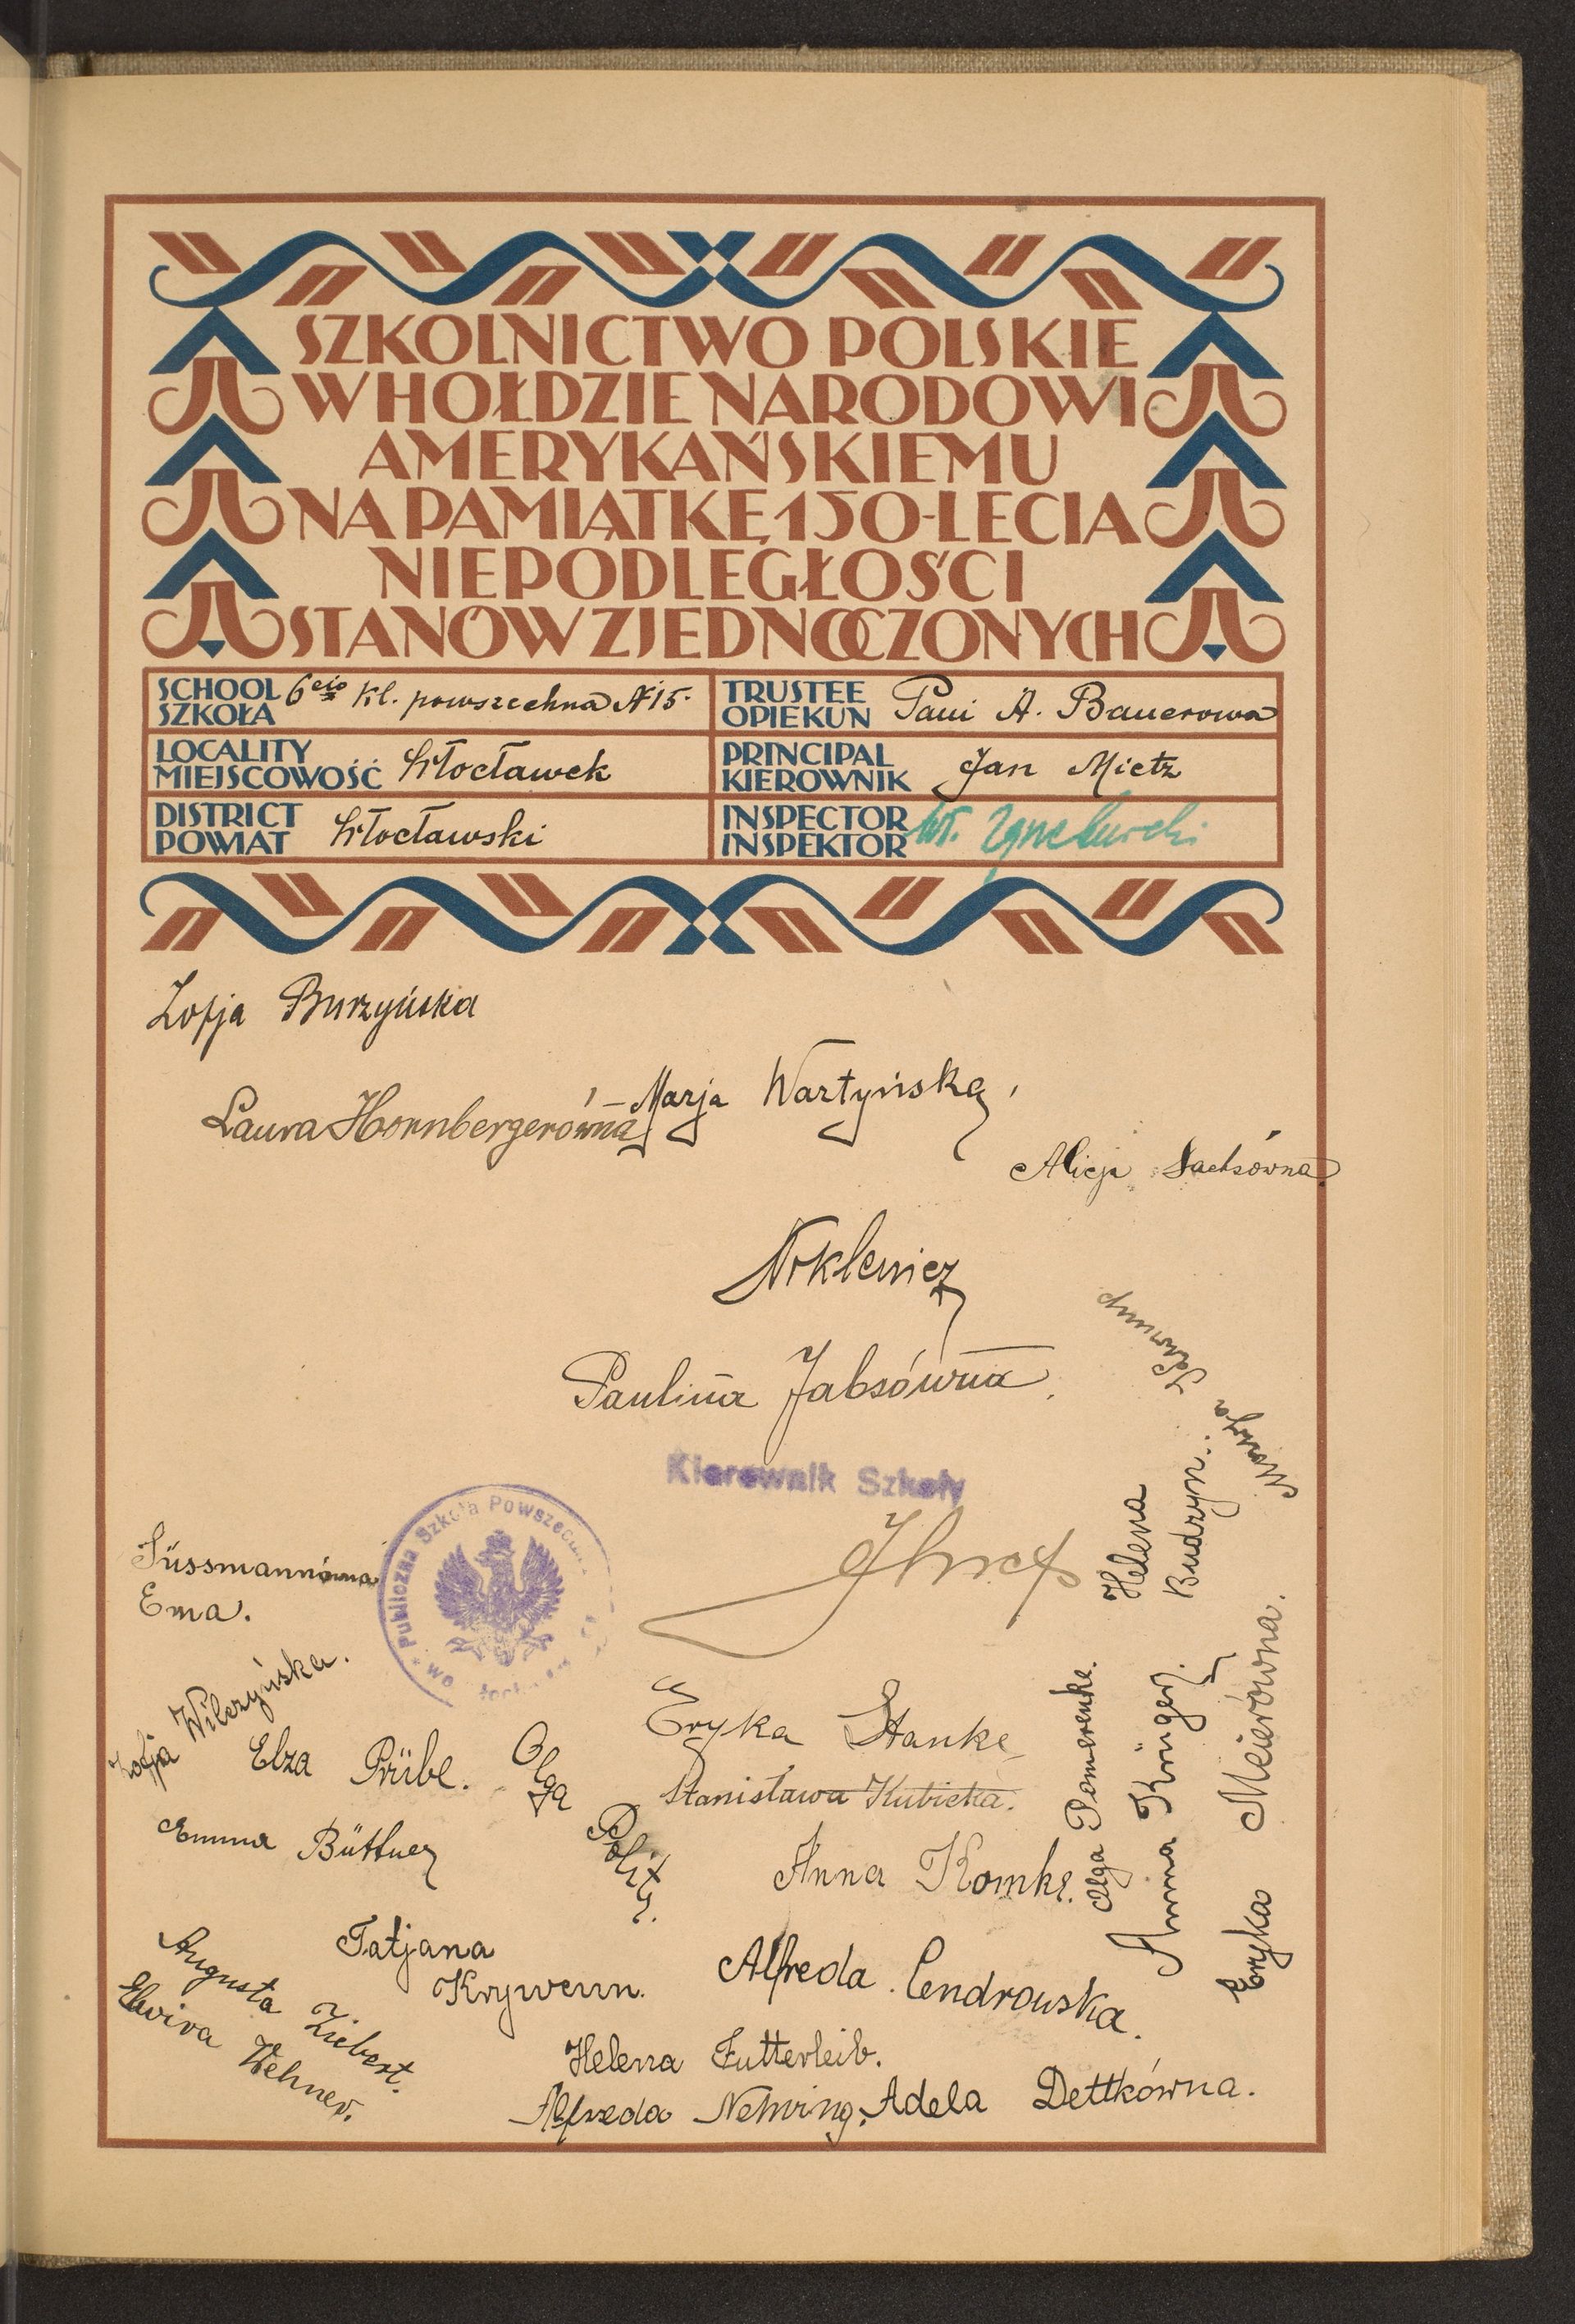 SZKOLNICTWO POLSKIE
W HOŁDZIE NARODOWI
AMERYKAŃSKIEMU
NA PAMIĄTKĘ 150-LECIA
NIEPODLEGŁOŚCI
STANÓW ZJEDNOCZONYCH
SCHOOL
SZKOŁA
6cio kl. powszechna N 15.
TRUSTEE
OPIEKUN
Pani A. Bauerowa
LOCALITY
MIEJSCOWOŚĆ
Włocławek
PRINCIPAL
KIEROWNIK
Jan Mietz
DISTRICT
POWIAT
Włocławski
INSPECTOR
INSPEKTOR
Zofja Burzyńska
Laura Hornbergerówna
Marja Wartyńska
Alicja Sachsówna
Paulina Jabsówna.
Marja
Kierownik Szkoły
Publiczka Szkoła Powszech
we
Helena
Budzyn.
Süssmannówna
Ema.
Zofja Wilczyńska.
Elza Prübe.
Olga
Polity.
Eryka Stanke
Stanisława Kubicka.
Emma Büttner
Anna Komke.
Olga Pomerenke.
Anna Krüger.
Eryka Meierówna.
Tatjana
Krywenn.
Alfreda Cendrowska.
Augusta Ziebert.
Elwira Wehner.
Helena Futterleib.
Alfreda Nehring.
Adela Dettkówna.